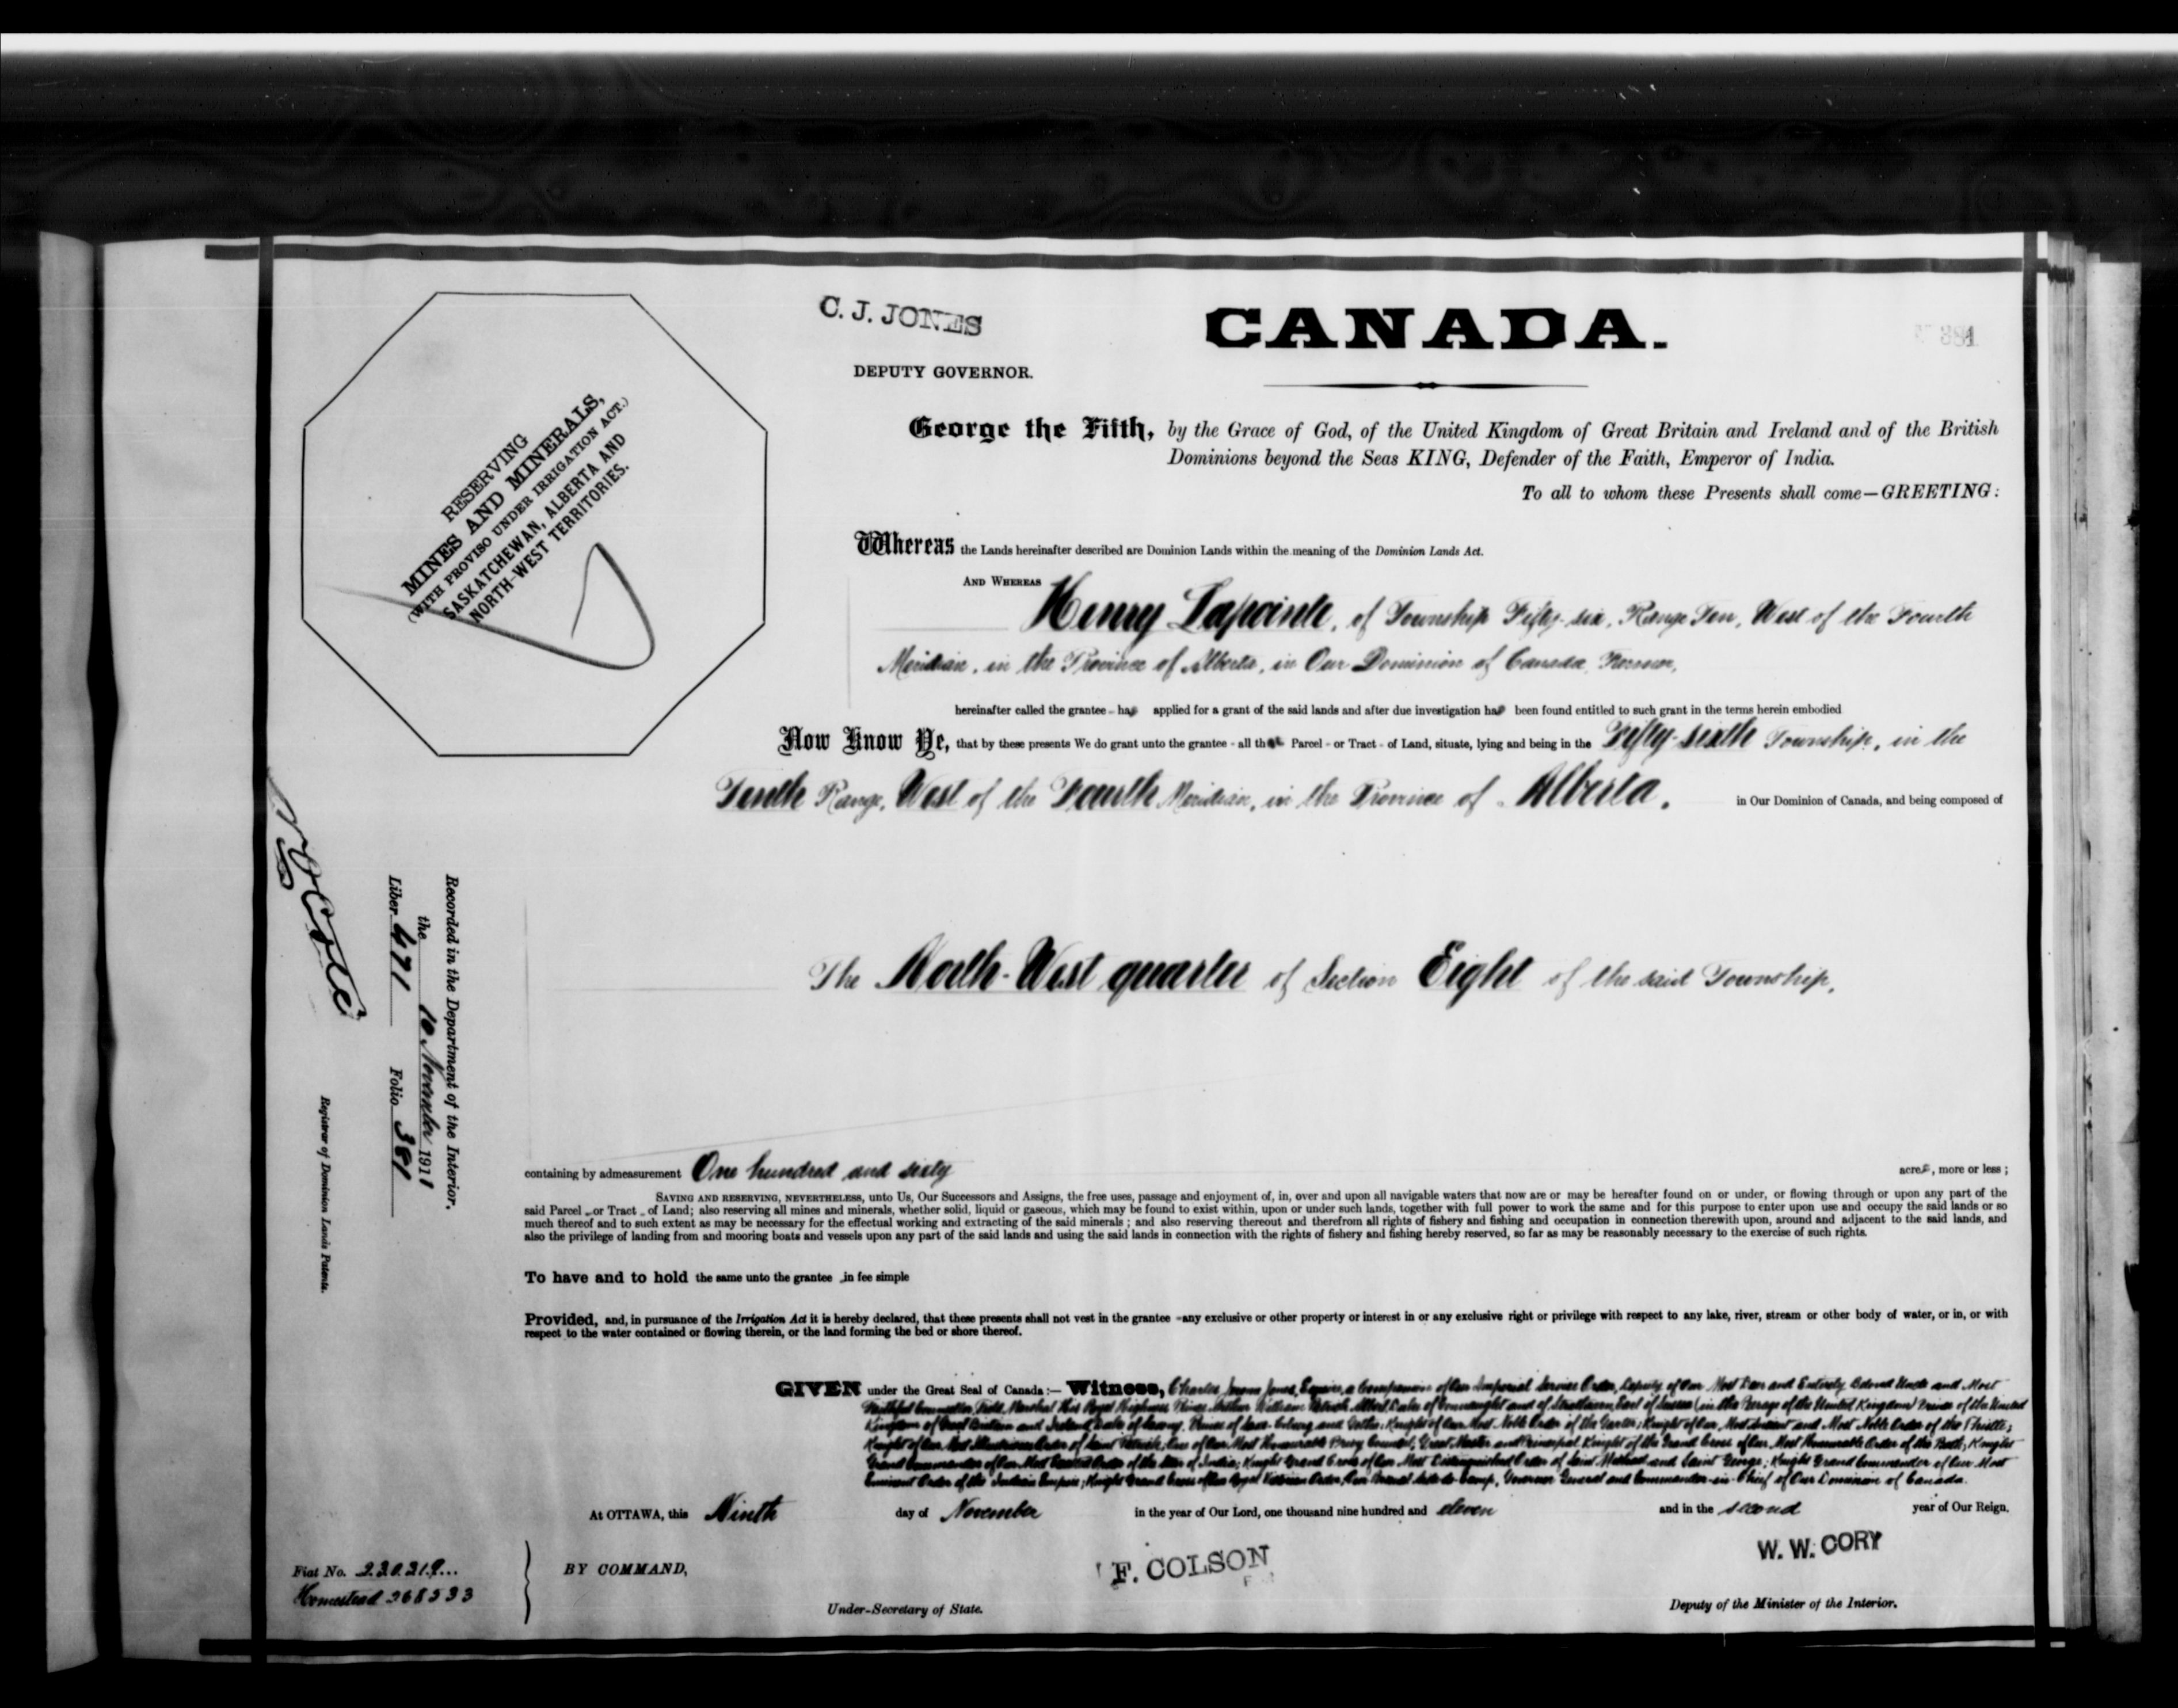 C. J. JONES
DEPUTY GOVERNOR.
CANADA.
381
RESERVING
MINES AND MINERALS,
(WITH PROVISO UNDER IRRIGATION ACT.)
SASKATCHEWAN, ALBERTA AND
NORTH-WEST TERRITORIES.
George the Fifth, by the Grace of God, of the United Kingdom of Great Britain and Ireland and of the British
Dominions beyond the Seas KING, Defender of the Faith, Emperor of India.
To all to whom these Presents shall come—GREETING:
Whereas the Lands hereinafter described are Dominion Lands within the meaning of the Dominion Lands Act.
AND WHEREAS
Henry Lapointe, of Township Fifty-six, Range Ten, West of the Fourth
Meridian, in the Province of Alberta, in Our Dominion of Canada, Farmer,
hereinafter called the grantee - has applied for a grant of the said lands and after due investigation has been found entitled to such grant in the terms herein embodied
Now Know Ye, that by these presents We do grant unto the grantee - all that Parcel - or Tract - of Land, situate, lying and being in the Fifty-sixth Township, in the
Tenth Range, West of the Fourth Meridian, in the Province of Alberta, in Our Dominion of Canada, and being composed of
The North-West quarter of Section Eight of the said Township,
Recorded in the Department of the Interior.
the 10 November 1911
Liber 471 Folio 381
Registrar of Dominion Lands Patents.
containing by admeasurement One hundred and sixty acres, more or less;
SAVING AND RESERVING, NEVERTHELESS, unto Us, Our Successors and Assigns, the free uses, passage and enjoyment of, in, over and upon all navigable waters that now are or may be hereafter found on or under, or flowing through or upon any part of the
said Parcel - or Tract - of Land; also reserving all mines and minerals, whether solid, liquid or gaseous, which may be found to exist within, upon or under such lands, together with full power to work the same and for this purpose to enter upon use and occupy the said lands or so
much thereof and to such extent as may be necessary for the effectual working and extracting of the said minerals; and also reserving thereout and therefrom all rights of fishery and fishing and occupation in connection therewith upon, around and adjacent to the said lands, and
also the privilege of landing from and mooring boats and vessels upon any part of the said lands and using the said lands in connection with the rights of fishery and fishing hereby reserved, so far as may be reasonably necessary to the exercise of such rights.
To have and to hold the same unto the grantee - in fee simple
Provided, and, in pursuance of the Irrigation Act it is hereby declared, that these presents shall not vest in the grantee - any exclusive or other property or interest in or any exclusive right or privilege with respect to any lake, river, stream or other body of water, or in, or with
respect to the water contained or flowing therein, or the land forming the bed or shore thereof.
GIVEN under the Great Seal of Canada:— Witness, Charles Jones, Esquire, a Companion of Our Imperial Service Order, Deputy of Our Most Dear and Entirely Beloved Uncle and Most
Faithful Counsellor, Field Marshal His Royal Highness Prince Arthur William Patrick Albert Duke of Connaught and of Strathearn, Earl of Sussex (in the Peerage of the United Kingdom) Prince of the United
Kingdom of Great Britain and Ireland, Duke of Saxony, Prince of Saxe-Coburg and Gotha; Knight of Our Most Noble Order of the Garter; Knight of Our Most Ancient and Most Noble Order of the Thistle;
Knight of Our Most Illustrious Order of Saint Patrick; One of Our Most Honourable Privy Council; Great Master and Principal Knight of the Grand Cross of Our Most Honourable Order of the Bath; Knight
Grand Commander of Our Most Exalted Order of the Star of India; Knight Grand Cross of Our Most Distinguished Order of Saint Michael and Saint George; Knight Grand Commander of Our Most
Eminent Order of the Indian Empire; Knight Grand Cross of Our Royal Victorian Order; Our Personal Aide-de-Camp, Governor General and Commander-in-Chief of Our Dominion of Canada.
At OTTAWA, this Ninth day of November in the year of Our Lord, one thousand nine hundred and eleven and in the second year of Our Reign.
Fiat No. 230219...
Homestead 268533
BY COMMAND,
F. COLSON
W. W. CORY
Under-Secretary of State.
Deputy of the Minister of the Interior.